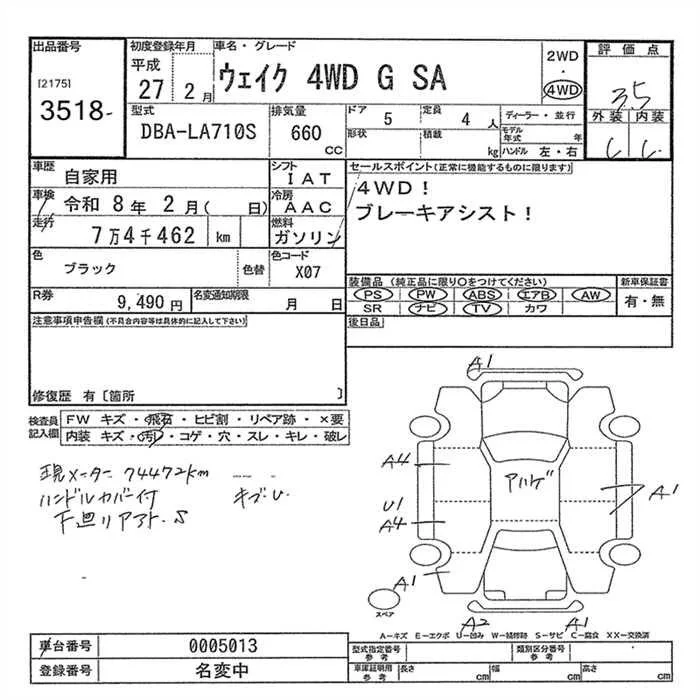 出品番号
[2175]
3518-
初度登録年月
平成
27 2月
車名・グレード
ウェイク 4WD G SA
2WD
・
4WD
評価点
3.5
外装 内装
C C
型式
DBA-LA710S
排気量
660
CC
ドア 5
定員 4人
形状
積載 kg
ディーラー・並行
モデル年式 年
ハンドル 左・右
車歴
自家用
シフト
IAT
車検
令和 8年 2月( 日)
冷房
AAC
走行
7万4千462 km
燃料
ガソリン
色
ブラック
色替
色コード
X07
R券
9,490円
名変通知期限
月 日
セールスポイント(正常に機能するものに限ります)
4WD!
ブレーキアシスト!
装備品 (純正品に限り○をつけてください)
PS PW ABS エアB AW
SR ナビ TV カワ
新車保証書
有・無
後日品
注意事項申告欄(不具合内容等は具体的に記入して下さい)
修復歴 有〔箇所 〕
検査員
記入欄
FW キズ・飛石・ヒビ割・リペア跡・×要
内装 キズ・汚レ・コゲ・穴・スレ・キレ・破レ
現メーター 74472km
ハンドルカバー付 キズU
下廻リアフト.S
A1
A4
U1
A4
アルゲ
A1
A1
スペア
A2
A1
A-キズ E-エクボ U-凹み W-補修跡 S-サビ C-腐食 XX-交換済
車台番号
0005013
登録番号
名変中
型式指定番号
参考
類別区分番号
参考
車庫証明用
参考
長さ cm
幅 cm
高さ cm